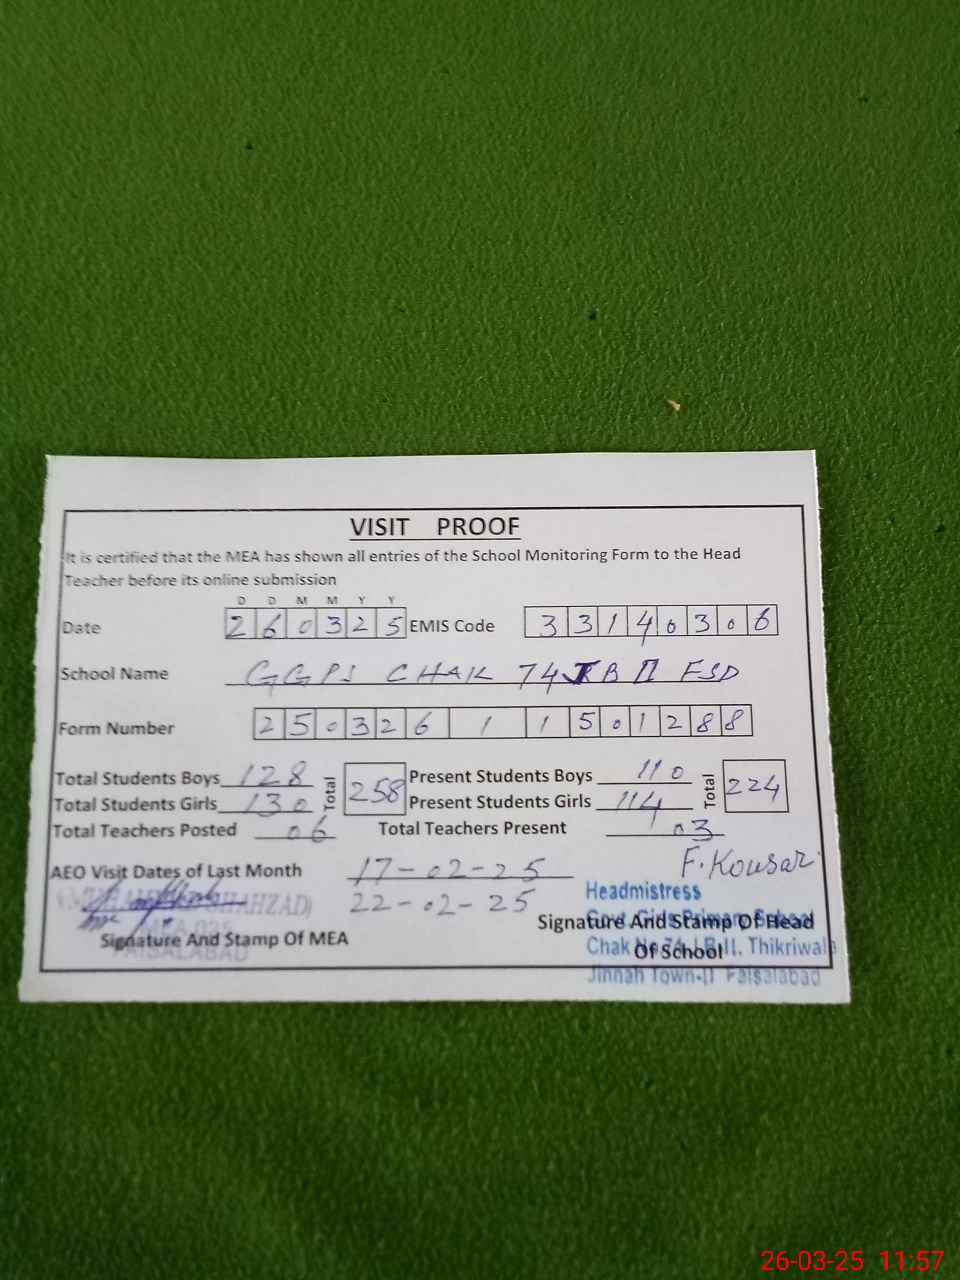 VISIT PROOF
It is certified that the MEA has shown all entries of the School Monitoring Form to the Head
Teacher before its online submission
D D M M Y Y
Date 2 6 0 3 2 5 EMIS Code 3 3 1 4 0 3 0 6
School Name GGPS CHAK 74 JB II FSD
Form Number 2 5 0 3 2 6 1 1 5 0 1 2 8 8
Total Students Boys 128 Total 258 Present Students Boys 110 Total 224
Total Students Girls 130 Present Students Girls 114
Total Teachers Posted 06 Total Teachers Present 03
AEO Visit Dates of Last Month 17-02-25 F. Kousar
22-02-25
SHAHZAD)
Headmistress
Govt. Girls Primary School
Signature And Stamp Of Head
Signature And Stamp Of MEA
Of School
Chak No. 74 J.B II, Thikriwala
FAISALABAD
Jinnah Town-II Faisalabad
26-03-25 11:57